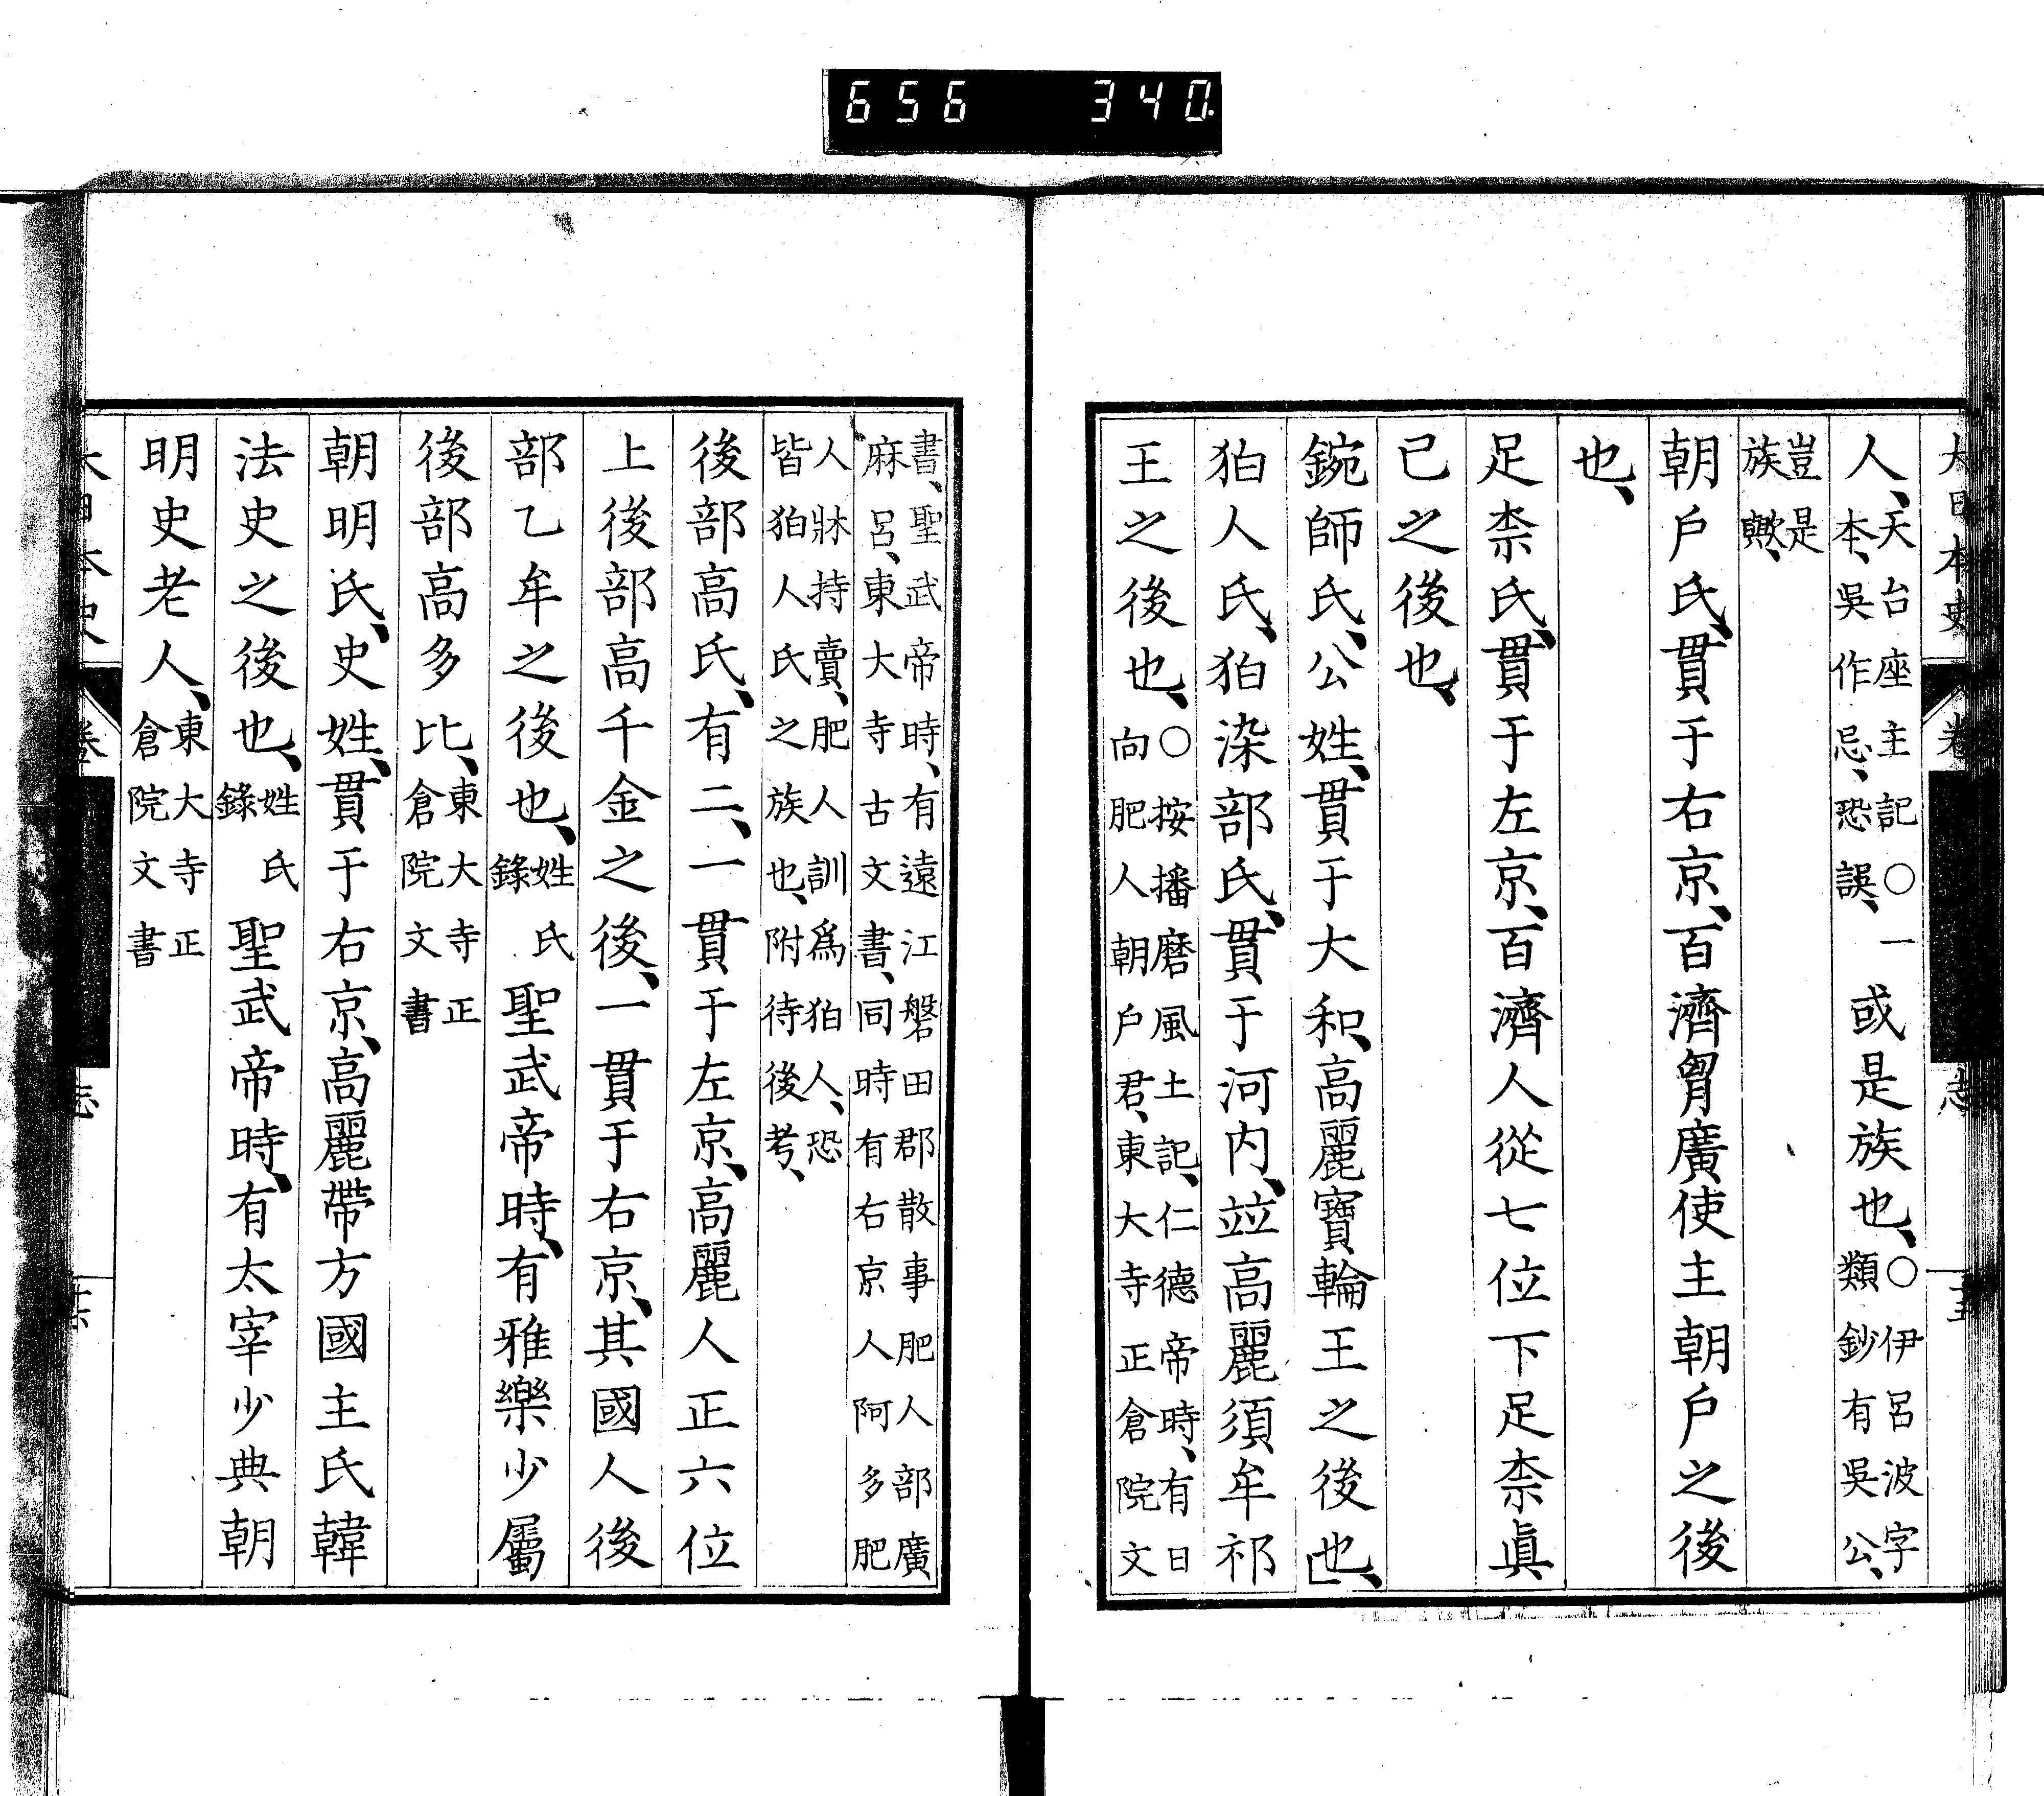 656 340
大日本史 卷 志
人、天台座主記○一
本、吳作忌、恐誤、或是族也、○伊呂波字
類鈔有吳公、
豈是
族歟、
朝戶氏、貫于右京、百濟胷廣使主朝戶之後
也、
足柰氏、貫于左京、百濟人從七位下足柰眞
己之後也、
鋺師氏、公姓、貫于大和、高麗寶輪王之後也、
狛人氏、狛染部氏、貫于河內、竝高麗須牟祁
王之後也、○按播磨風土記、仁德帝時、有日
向肥人朝戶君、東大寺正倉院文
書、聖武帝時、有遠江磐田郡散事肥人部廣
麻呂、東大寺古文書、同時有右京人阿多肥
人牀持賣、肥人訓爲狛人、恐
皆狛人氏之族也、附待後考、
後部高氏、有二、一貫于左京、高麗人正六位
上後部高千金之後、一貫于右京、其國人後
部乙牟之後也、姓氏
錄聖武帝時、有雅樂少屬
後部高多比、東大寺正
倉院文書
朝明氏、史姓、貫于右京、高麗帶方國主氏韓
法史之後也、姓氏
錄聖武帝時、有太宰少典朝
明史老人、東大寺正
倉院文書
大日本史 卷 志